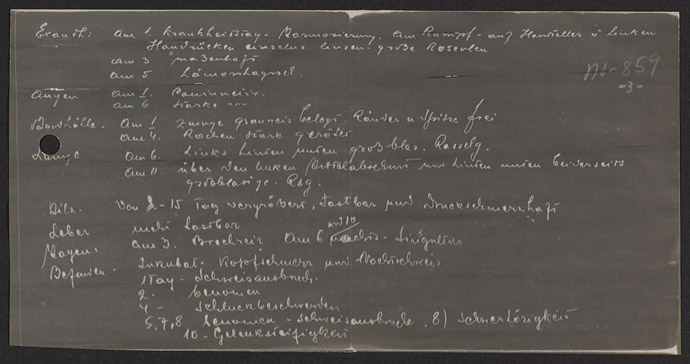 Exanth: Am 1. Krankheitstag - Marmorierung. Am Rumpf - auf Handteller u linken
Handrücken einzelne linsen große Roseolen
am 3 massenhaft
am 5 hämorrhagisch.
No-859
-3-
Augen am 1.
am 6 starke
Mundhöhle. Am 1 Zunge grauweis belegt. Ränder u Spitze frei
am 4. Rachen stark gerötet
Lunge Am 6. Links hinten unten großblas. Rasselg.
Am 11. über den linken und hinten unten beiderseits
grobblasige. Rsg.
Milz. Von 2-15 Tag vergrößert, tastbar und druckschmerzhaft
Leber nicht tastbar
Magen: am 3. Brechreiz Am 6 - Singultus
Befinden. Inkubat. Kopfschmerz und Nachtschweis
1 Tag - Schweisausbruch.
2. - benomen
4 - Schluckbeschwerden
5, 7, 8 benomen - Schweisausbrüche, 8) Schwerhörigkeit
10 - Gelenksteifigkeit